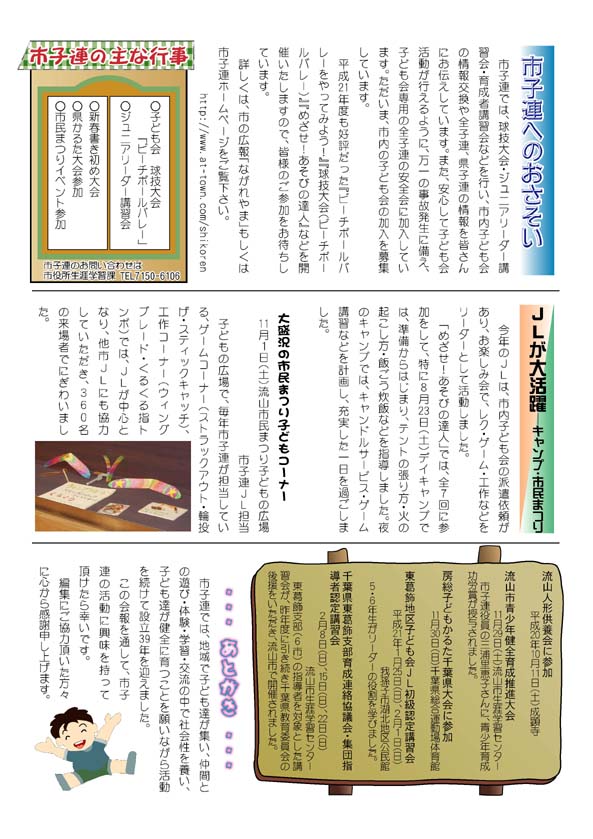 市子連へのおさそい
市子連では、球技大会・ジュニアリーダー講
習会・育成者講習会などを行い、市内子ども会
の情報交換や全子連、県子連の情報を皆さん
にお伝えしています。また、安心して子ども会
活動が行えるように、万一の事故発生に備え、
子ども会専用の全子連の安全会に加入してい
ます。ただいま、市内の子ども会の加入を募集
しています。
平成21年度も好評だった『ビーチボールバ
レーをやってみよう！』『球技大会(ビーチボー
ルバレー)』『めざせ！あそびの達人』などを開
催いたしますので、皆様のご参加をお待ちし
ています。
詳しくは、市の広報「ながれやま」もしくは
市子連ホームページをご覧下さい。
http://www.at-town.com/shikoren
市子連の主な行事
○子ども会 球技大会
「ビーチボールバレー」
○ジュニアリーダー講習会
○新春書き初め大会
○県かるた大会参加
○市民まつりイベント参加
市子連のお問い合わせは
市役所生涯学習課 TEL7150-6106
JLが大活躍 キャンプ・市民まつり
今年のJLは、市内子ども会の派遣依頼が
あり、お楽しみ会で、レク・ゲーム・工作などを
リーダーとして活動しました。
「めざせ！あそびの達人」では、全7回に参
加をして、特に8月23日(土)デイキャンプで
は、準備からはじまり、テントの張り方・火の
起こし方・飯ごう炊飯などを指導しました。夜
のキャンプでは、キャンドルサービス・ゲーム
講習などを計画し、充実した一日を過ごしま
した。
大盛況の市民まつり子どもコーナー
11月1日(土)流山市民まつり子どもの広場
市子連JL担当
子どもの広場で、毎年市子連が担当してい
る、ゲームコーナー(ストラックアウト・輪投
げ・スティックキャッチ)、
工作コーナー(ウィング
ブレード・くるくる指ト
ンボ)では、JLが中心と
なり、他市JLにも協力
していただき、360名
の来場者でにぎわいまし
た。
流山人形供養会に参加
平成20年10月11日(土)成顕寺
流山市青少年健全育成推進大会
11月29日(土)流山市生涯学習センター
市子連役員の三浦里恵子さんに、青少年育成
功労賞が授与されました。
房総子どもかるた千葉県大会に参加
11月30日(日)千葉県総合運動場体育館
東葛飾地区子ども会JL初級認定講習会
平成21年1月25日(日)、2月1日(日)
我孫子市湖北地区公民館
5・6年生がリーダーの役割を学びました。
千葉県東葛飾支部育成連絡協議会・集団指
導者認定講習会
2月8日(日)、15日(日)、22日(日)
流山市生涯学習センター
東葛飾支部(6市)の指導者を対象とした講
習会が、昨年度に引き続き千葉県教育委員会の
後援をいただき、流山市で開催されました。
・・・あとがき・・・
市子連では、地域で子ども達が集い、仲間と
の遊び・体験・学習・交流の中で社会性を養い、
子ども達が健全に育つことを願いながら活動
を続けて設立39年を迎えました。
この会報を通して、市子
連の活動に興味を持って
頂けたら幸いです。
編集にご協力頂いた方々
に心から感謝申し上げます。